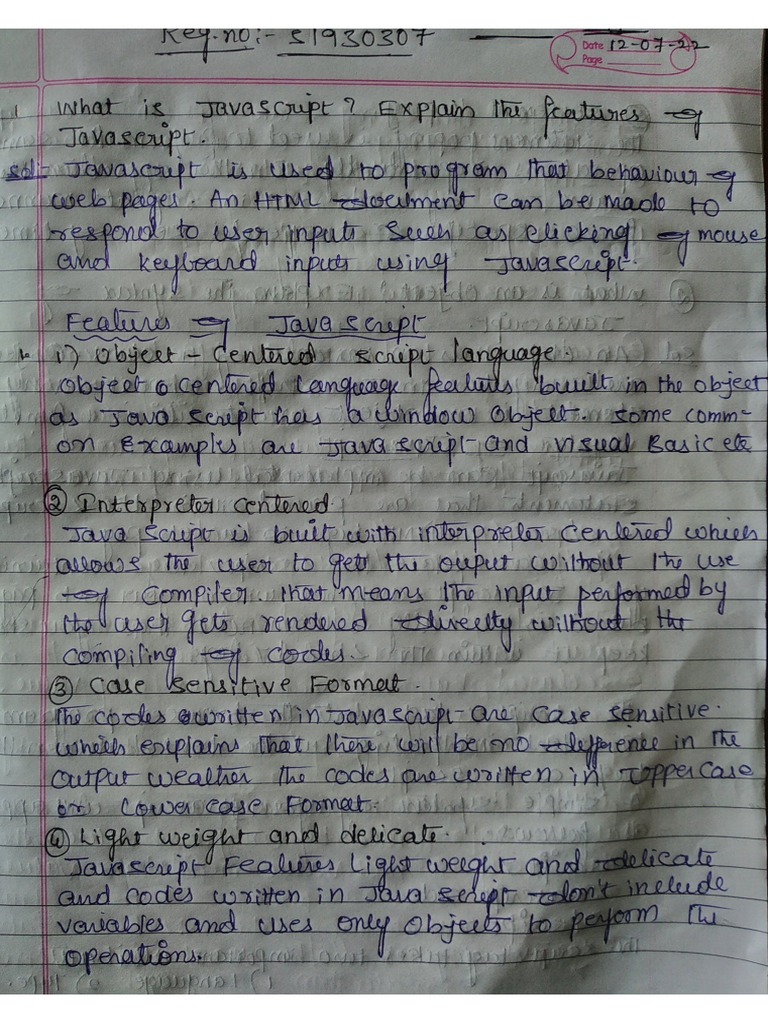 Reg.no:- 51930307
Date 12-07-22
Page
1 What is Javascript? Explain the features of
Javascript.
Sol:- Javascript is used to program that behaviour of
web pages. An HTML document can be made to
respond to user inputs such as clicking of mouse
and keyboard inputs using Javascript.
Features of Java script
1. i) Object - Centered script language.
Object centered language features built in the object
as Java script has a window object. Some comm-
on examples are Java script and visual Basic etc
② Interpreter centered.
Java script is built with interpreter centered which
allows the user to get the ouput without the use
of compiler. that means the input performed by
the user gets rendered directly without the
compiling of codes.
③ Case sensitive Format.
The codes written in Javascript are case sensitive.
which explains that there will be no difference in the
output weather the codes are written in Upper case
or Lower case Format.
④ Light weight and delicate.
Javascript Features Light weight and delicate
and codes written in Java script don't include
variables and uses only objects to perform the
operations.